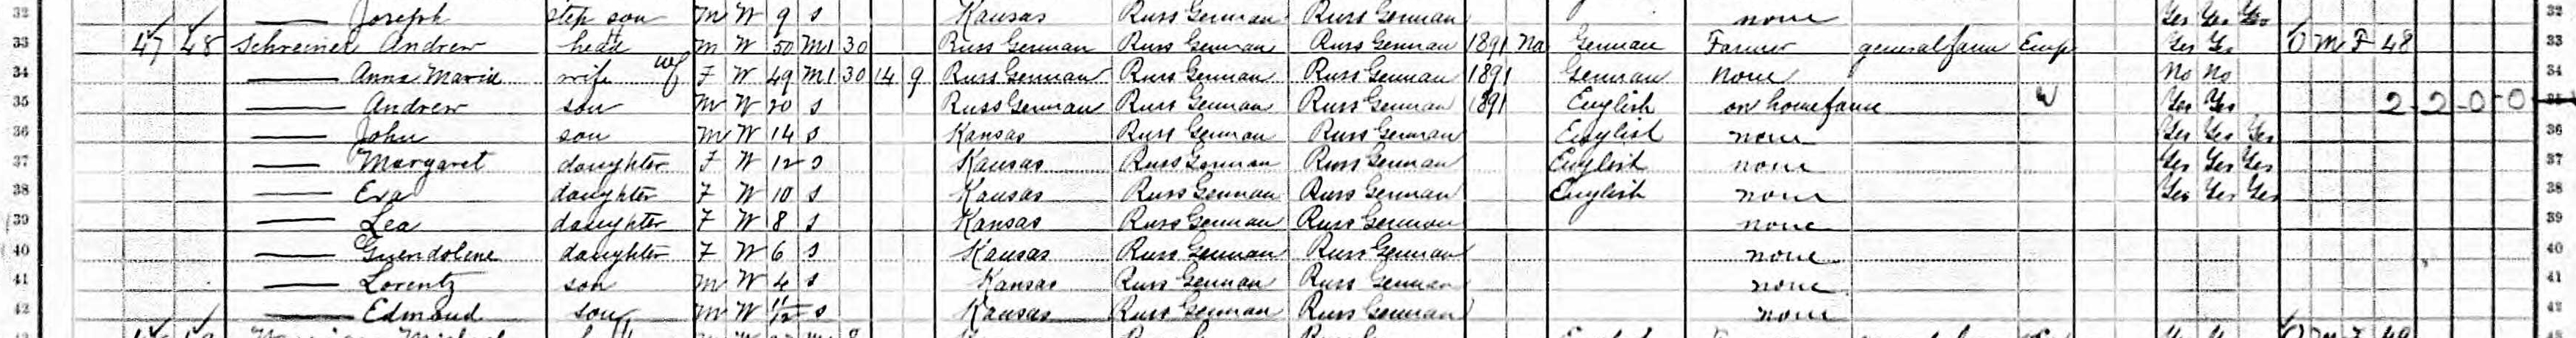 32 — Joseph step son M W 9 S Kansas Russ German Russ German none Yes Yes Yes 32
33 47 48 Schreiner Andrew head M W 50 M1 30 Russ German Russ German Russ German 1891 Na German Farmer general farm Emp Yes Yes O M F 48 33
34 — Anna Maria wife F W 49 M1 30 14 9 Russ German Russ German Russ German 1891 German None No No 34
35 — Andrew son M W 20 S Russ German Russ German Russ German 1891 English on home farm W Yes Yes 2-2-0-0 35
36 — John son M W 14 S Kansas Russ German Russ German English none Yes Yes Yes 36
37 — Margaret daughter F W 12 S Kansas Russ German Russ German English none Yes Yes Yes 37
38 — Eva daughter F W 10 S Kansas Russ German Russ German English none Yes Yes Yes 38
39 — Lea daughter F W 8 S Kansas Russ German Russ German none 39
40 — Guendolene daughter F W 6 S Kansas Russ German Russ German none 40
41 — Lorentz son M W 4 S Kansas Russ German Russ German none 41
42 — Edmond son M W 11/12 S Kansas Russ German Russ German none 42